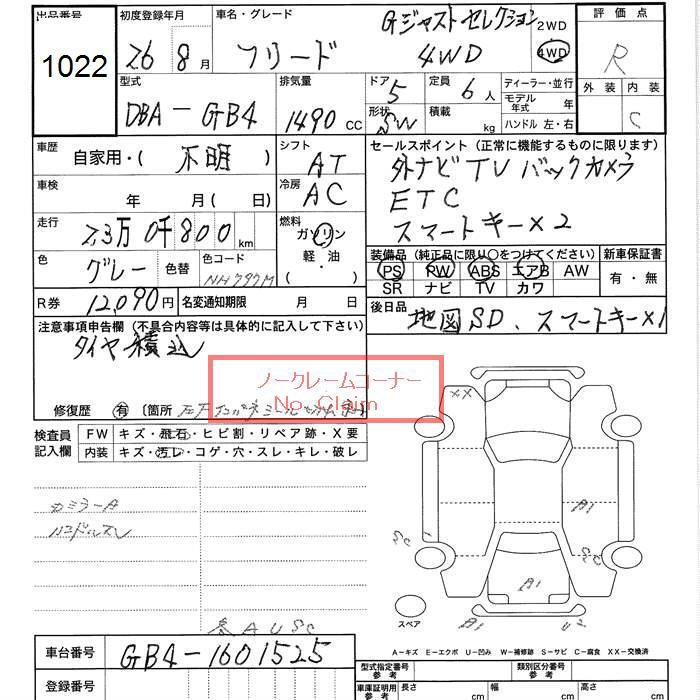 出品番号 初度登録年月 車名・グレード 評価点
1022 26 8月 フリード Gジャストセレクション 4WD 2WD 4WD R
型式 排気量 ドア 定員 ディーラー・並行 外装 内装
DBA-GB4 1490 CC 5 6人 モデル年式 年 C
形状 SW 積載 kg ハンドル 左・右
車歴 自家用・( 不明 ) シフト AT セールスポイント (正常に機能するものに限ります)
外ナビ TV バックカメラ
車検 年 月(日) 冷房 AC ETC
スマートキー×2
走行 2,3万0千800km 燃料 ガソリン 軽・油 ・
装備品 (純正品に限り○をつけてください) 新車保証書
色 グレー 色替 色コード NH797M PS PW ABS エアB AW 有・無
SR ナビ TV カワ
R券 12,090円 名変通知期限 月 日 後日品 地図SD、スマートキー×1
注意事項申告欄 (不具合内容等は具体的に記入して下さい)
タイヤ積込
ノークレームコーナー
No Claim
修復歴 有 [箇所
検査員記入欄 FW キズ・飛石・ヒビ割・リペア跡・X要
内装 キズ・汚レ・コゲ・穴・スレ・キレ・破レ
カミラーA
ハンドルスレ
XX
A1
SC
SC
A1
スペア B1 U2
A U SC
A-キズ E-エクボ U-凹み W-補修跡 S-サビ C-腐食 XX-交換済
車台番号 GB4-1601525 型式指定番号 参考 類別区分番号 参考
登録番号 車庫証明用 参考 長さ cm 幅 cm 高さ cm